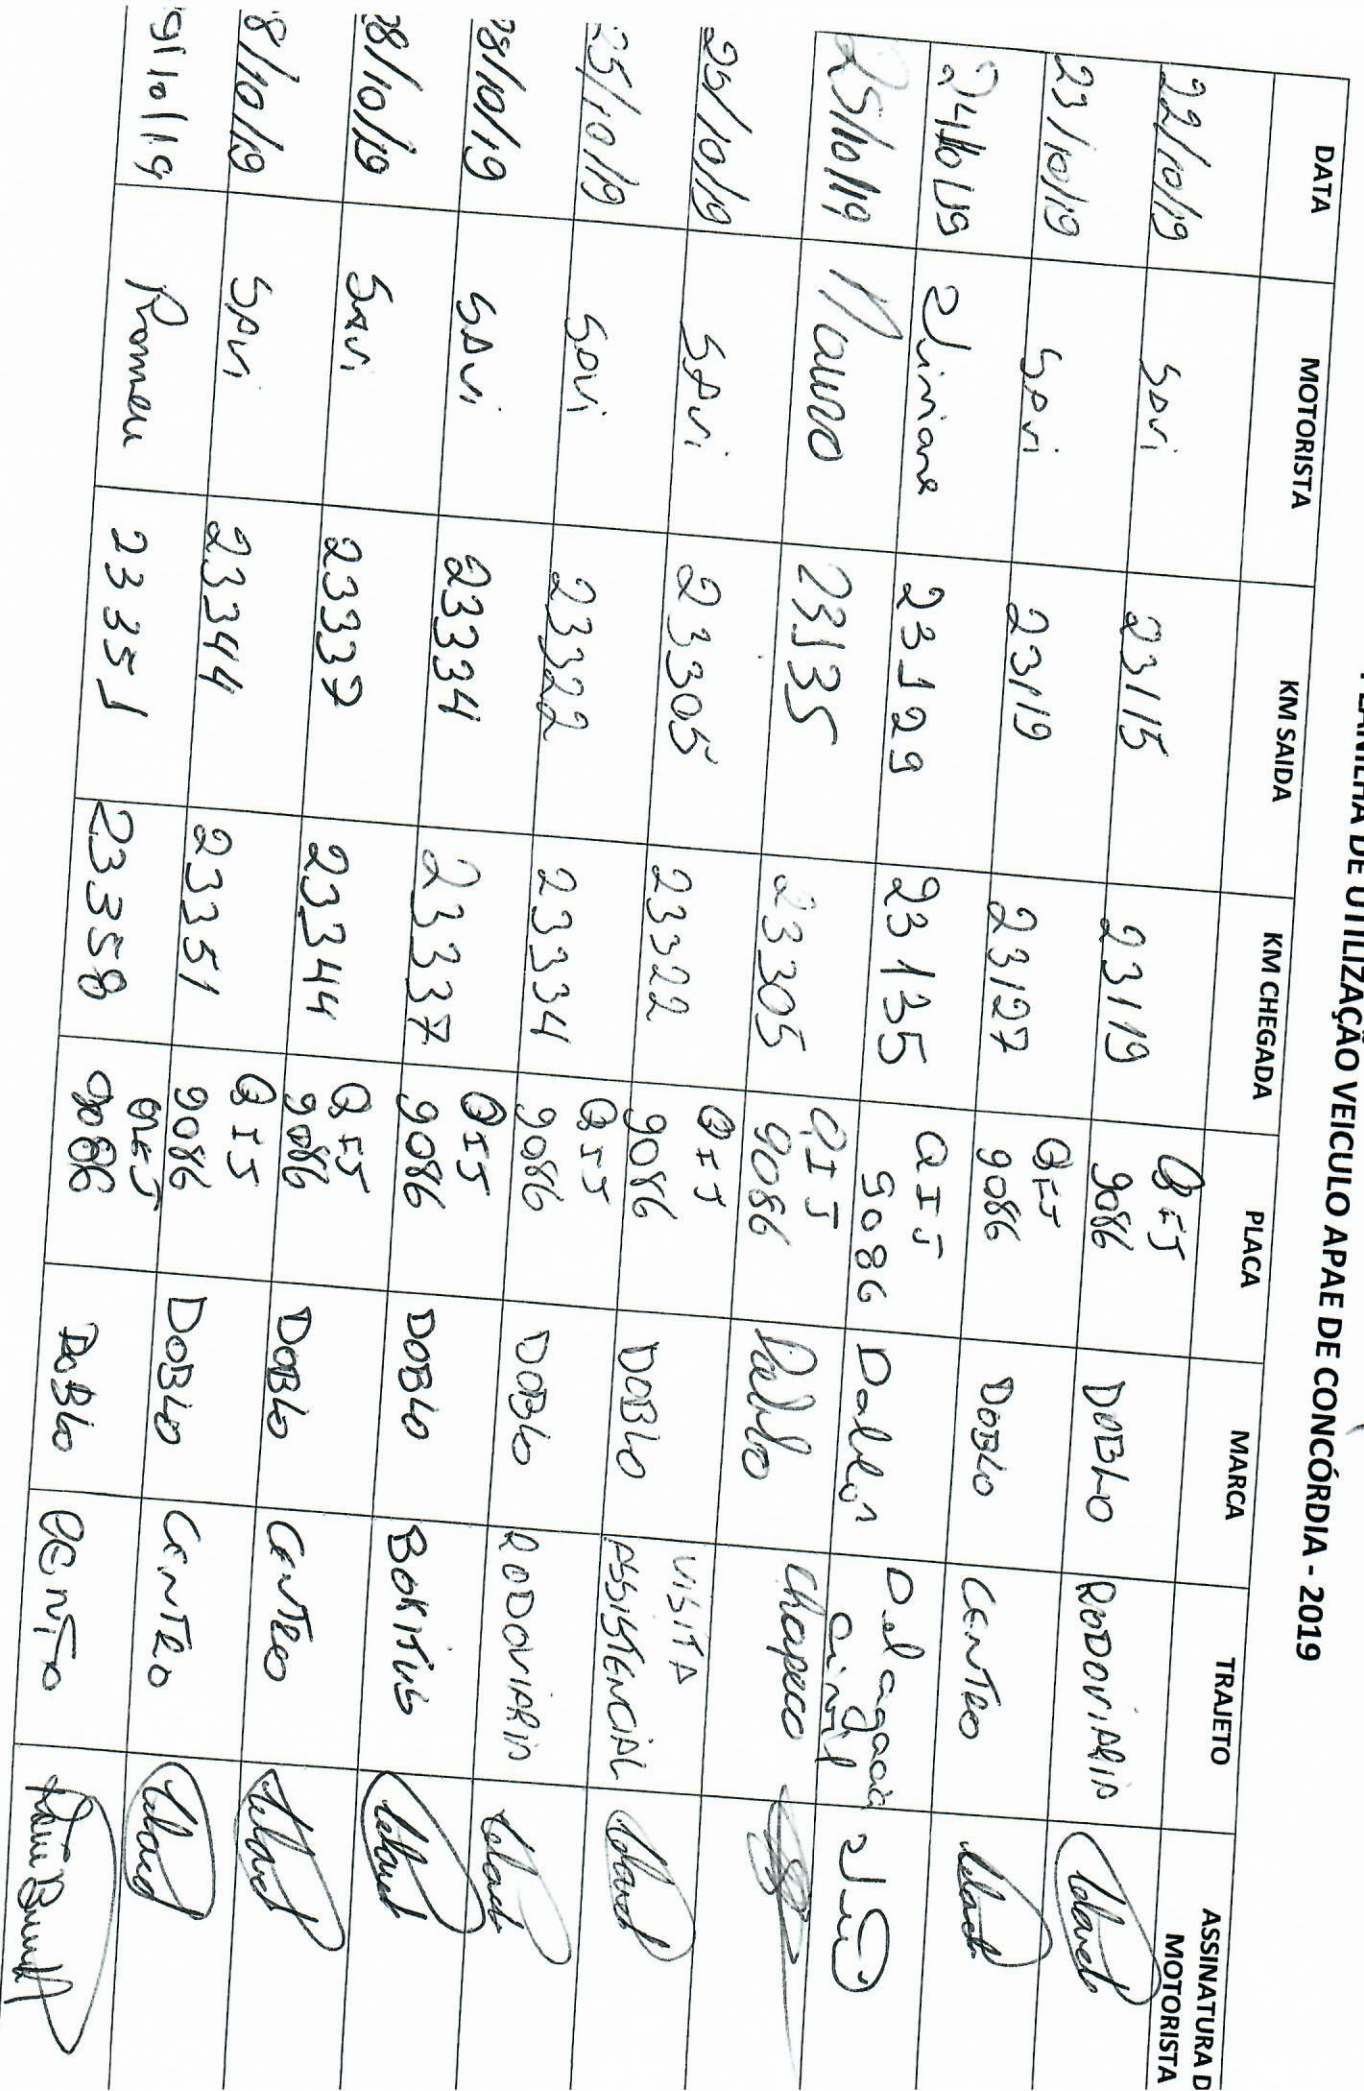 PLANILHA DE UTILIZAÇÃO VEICULO APAE DE CONCÓRDIA - 2019
DATA MOTORISTA KM SAIDA KM CHEGADA PLACA MARCA TRAJETO ASSINATURA D
MOTORISTA
22/10/19 SAVI 23115 23119 QIJ 9086 DOBLO RODOVIARIA
23/10/19 SAVI 23119 23127 QIJ 9086 DOBLO CENTRO
24/10/19 Eliviane 23129 23135 QIJ 9086 Doblon Delagacia Civil
25/10/19 Mauro 23135 23305 QIJ 9086 Doblo Chapeco
25/10/19 SAVI 23305 23322 QIJ 9086 DOBLO VISITA ASSISTENCIAL
25/10/19 SAVI 23322 23334 QIJ 9086 DOBLO RODOVIARIA
28/10/19 SAVI 23334 23337 QIJ 9086 DOBLO
28/10/19 SAVI 23337 23344 QIJ 9086 DOBLO CENTRO
8/10/19 SAVI 23344 23351 QIJ 9086 DOBLO CENTRO
9/10/19 Romeu 23351 23358 9086 DOBLO